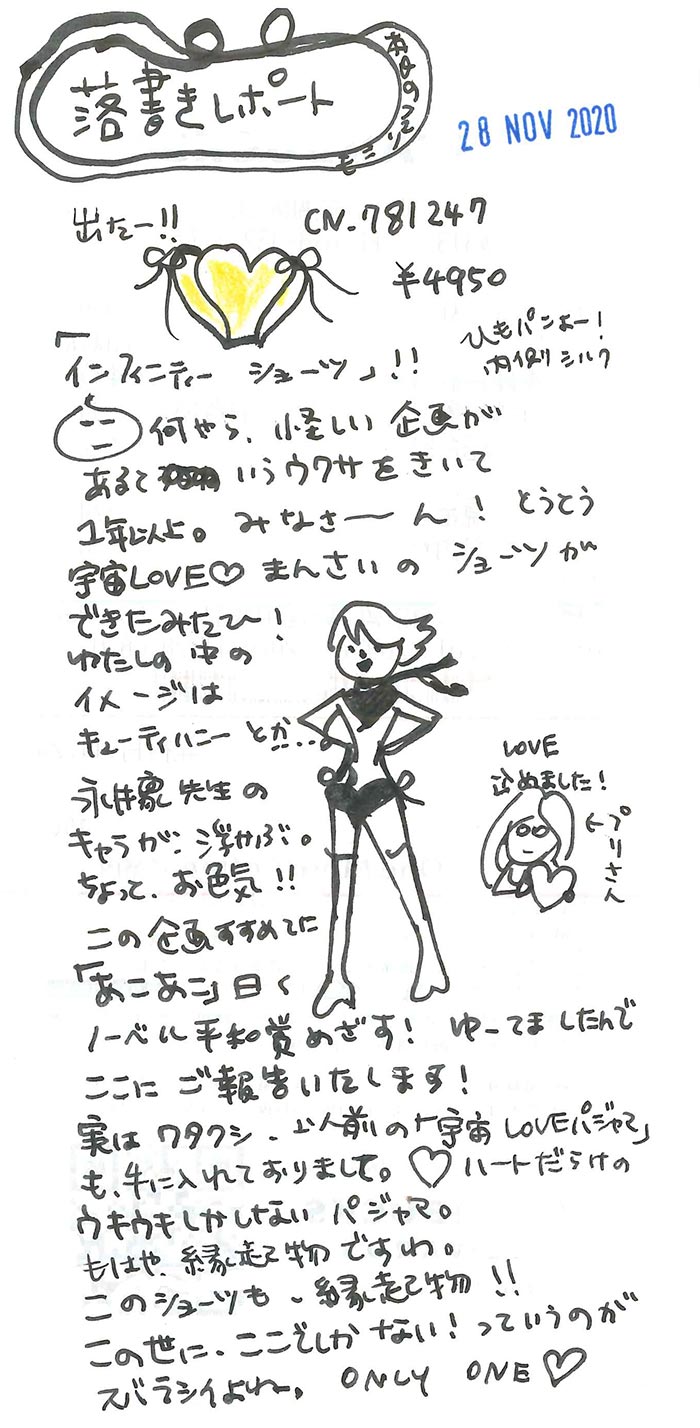 落書きレポート
28 NOV 2020
出たー!!
CN-781247
¥4950
ひもパンよー!
内側シルク
「インフィニティー ショーツ」!!
何やら、怪しい企画が
あると いうウワサをきいて
1年以上。みなさーん! とうとう
宇宙LOVE♡まんさいの ショーツが
できたみたひ〜!
わたしの中の
イメージは
キューティハニーとか...
永井豪先生の
キャラが、浮かぶ。
ちょって、お色気!!
LOVE
込めました!
←プリさん
この企画すすめてた
「あこあこ」曰く
ノーベル平和賞めざす! ゆーてましたんで
ここに ご報告いたします!
実は ワタクシ、以前の「宇宙LOVEパジャマ」
も、手に入れておりまして。♡ハートだらけの
ウキウキしかしない パジャマ。
もはや、縁起物ですわ。
このショーツも、縁起物!!
この世に、ここでしか ない!っていうのが
スバラシイよねー。ONLY ONE♡